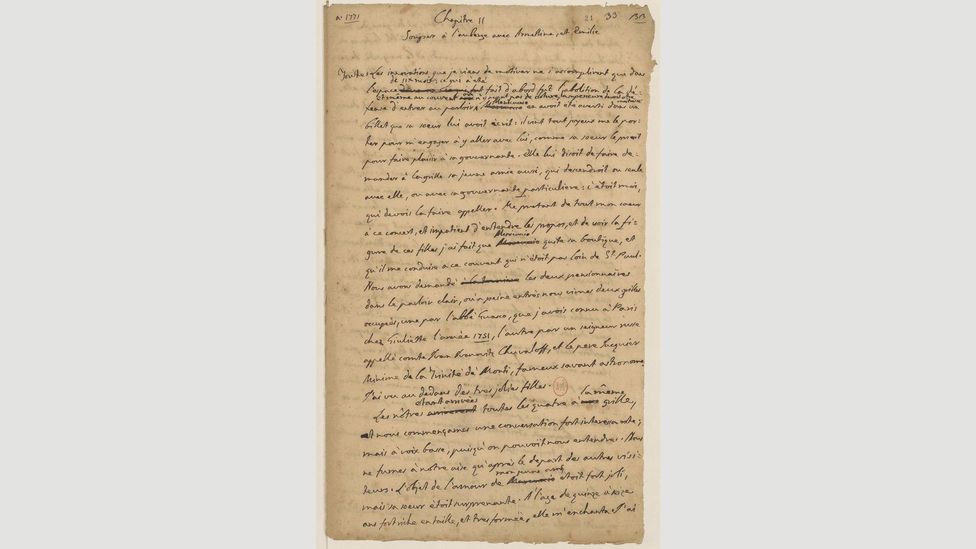 a: 1771 Chapitre II 21 33 1313
Souper à l'auberge avec Armelline, et Emilie
Toutes les innovations que je viens de motiver ne s'accomplirent que dans
de six mois; ce qui a été
l'espace fut fait d'abord fut l'abolition de la dé-
Et même au couvent on
fense d'entrer au parloir. Menicuccio en avoit été averti dans un
billet que sa sœur lui avoit écrit: il vint tout joyeux me le por-
ter pour m'engager à y aller avec lui, comme sa sœur le prioit
pour faire plaisir à sa gouvernante. Elle lui disoit de faire de-
mander à la grille sa jeune amie aussi, qui descendroit ou seule
avec elle, ou avec sa gouvernante particulière: c'étoit moi,
qui devois la faire appeller. Me pretant de tout mon cœur
à ce concert, et impatient d'entendre les propos, et de voir la fi-
gure de ces filles j'ai fait que Menicuccio quite sa boutique, et
qu'il me conduise à ce couvent qui n'étoit pas loin de St. Paul.
Nous avons demandé les deux pensionnaires
dans le parloir clair, où à peine entrés nous vimes deux grilles
occupées, une par l'abbé Guasco, que j'avois connu à Paris
chez Giuliette l'année 1751, l'autre par un seigneur russe
appellé comte Ivan Ivanovitz Chuvaloff, et le pere Jacquier
Minime de la Trinité de' Monti, fameux savant astronome.
J'ai vu au dedans des tres jolies filles.
étant arrivées la même
Les nôtres toutes les quatre à grille,
nous commençames une conversation fort interessante;
mais à voix basse, puisqu'on pouvoit nous entendre. Nous
ne fumes à notre aise qu'après le depart des autres visi-
mon jeune ami
teurs. L'objet de l'amour de étoit fort joli,
mais sa sœur étoit surprenante. A l'age de quinze à seize
ans fort riche en taille, et tres formée, elle m'enchanta. J'ai